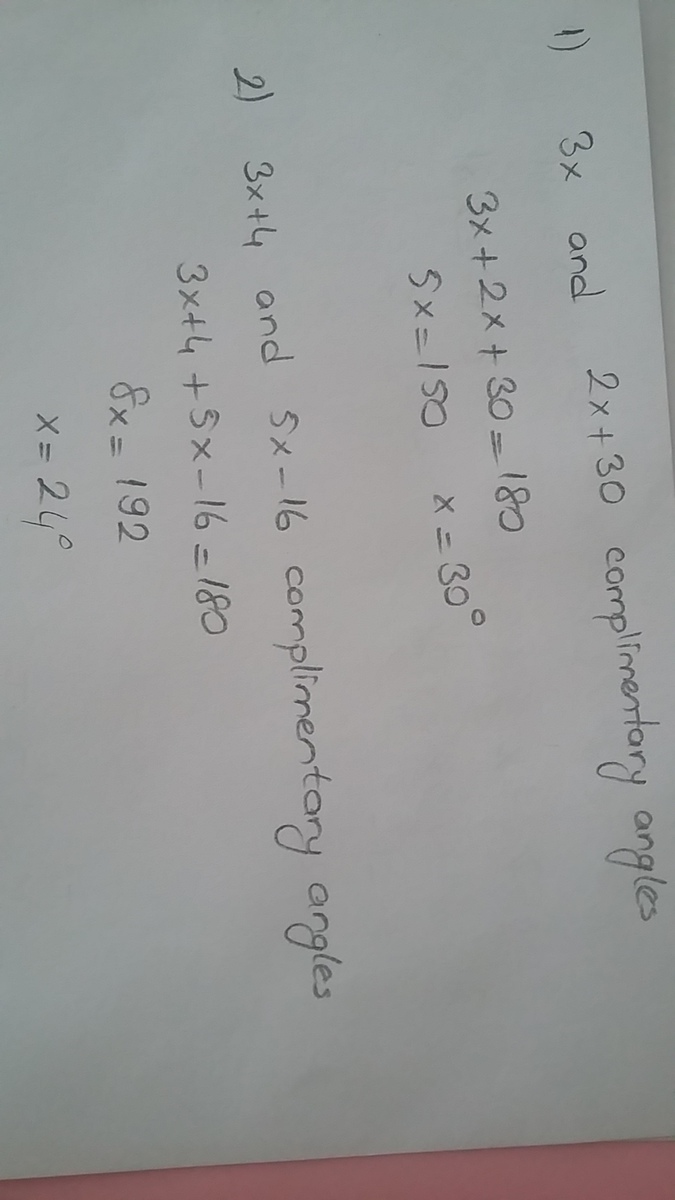 1) 3x and 2x+30 complimentary angles
3x+2x+30=180
5x=150 x=30°
2) 3x+4 and 5x-16 complimentary angles
3x+4+5x-16=180
8x=192
x=24°